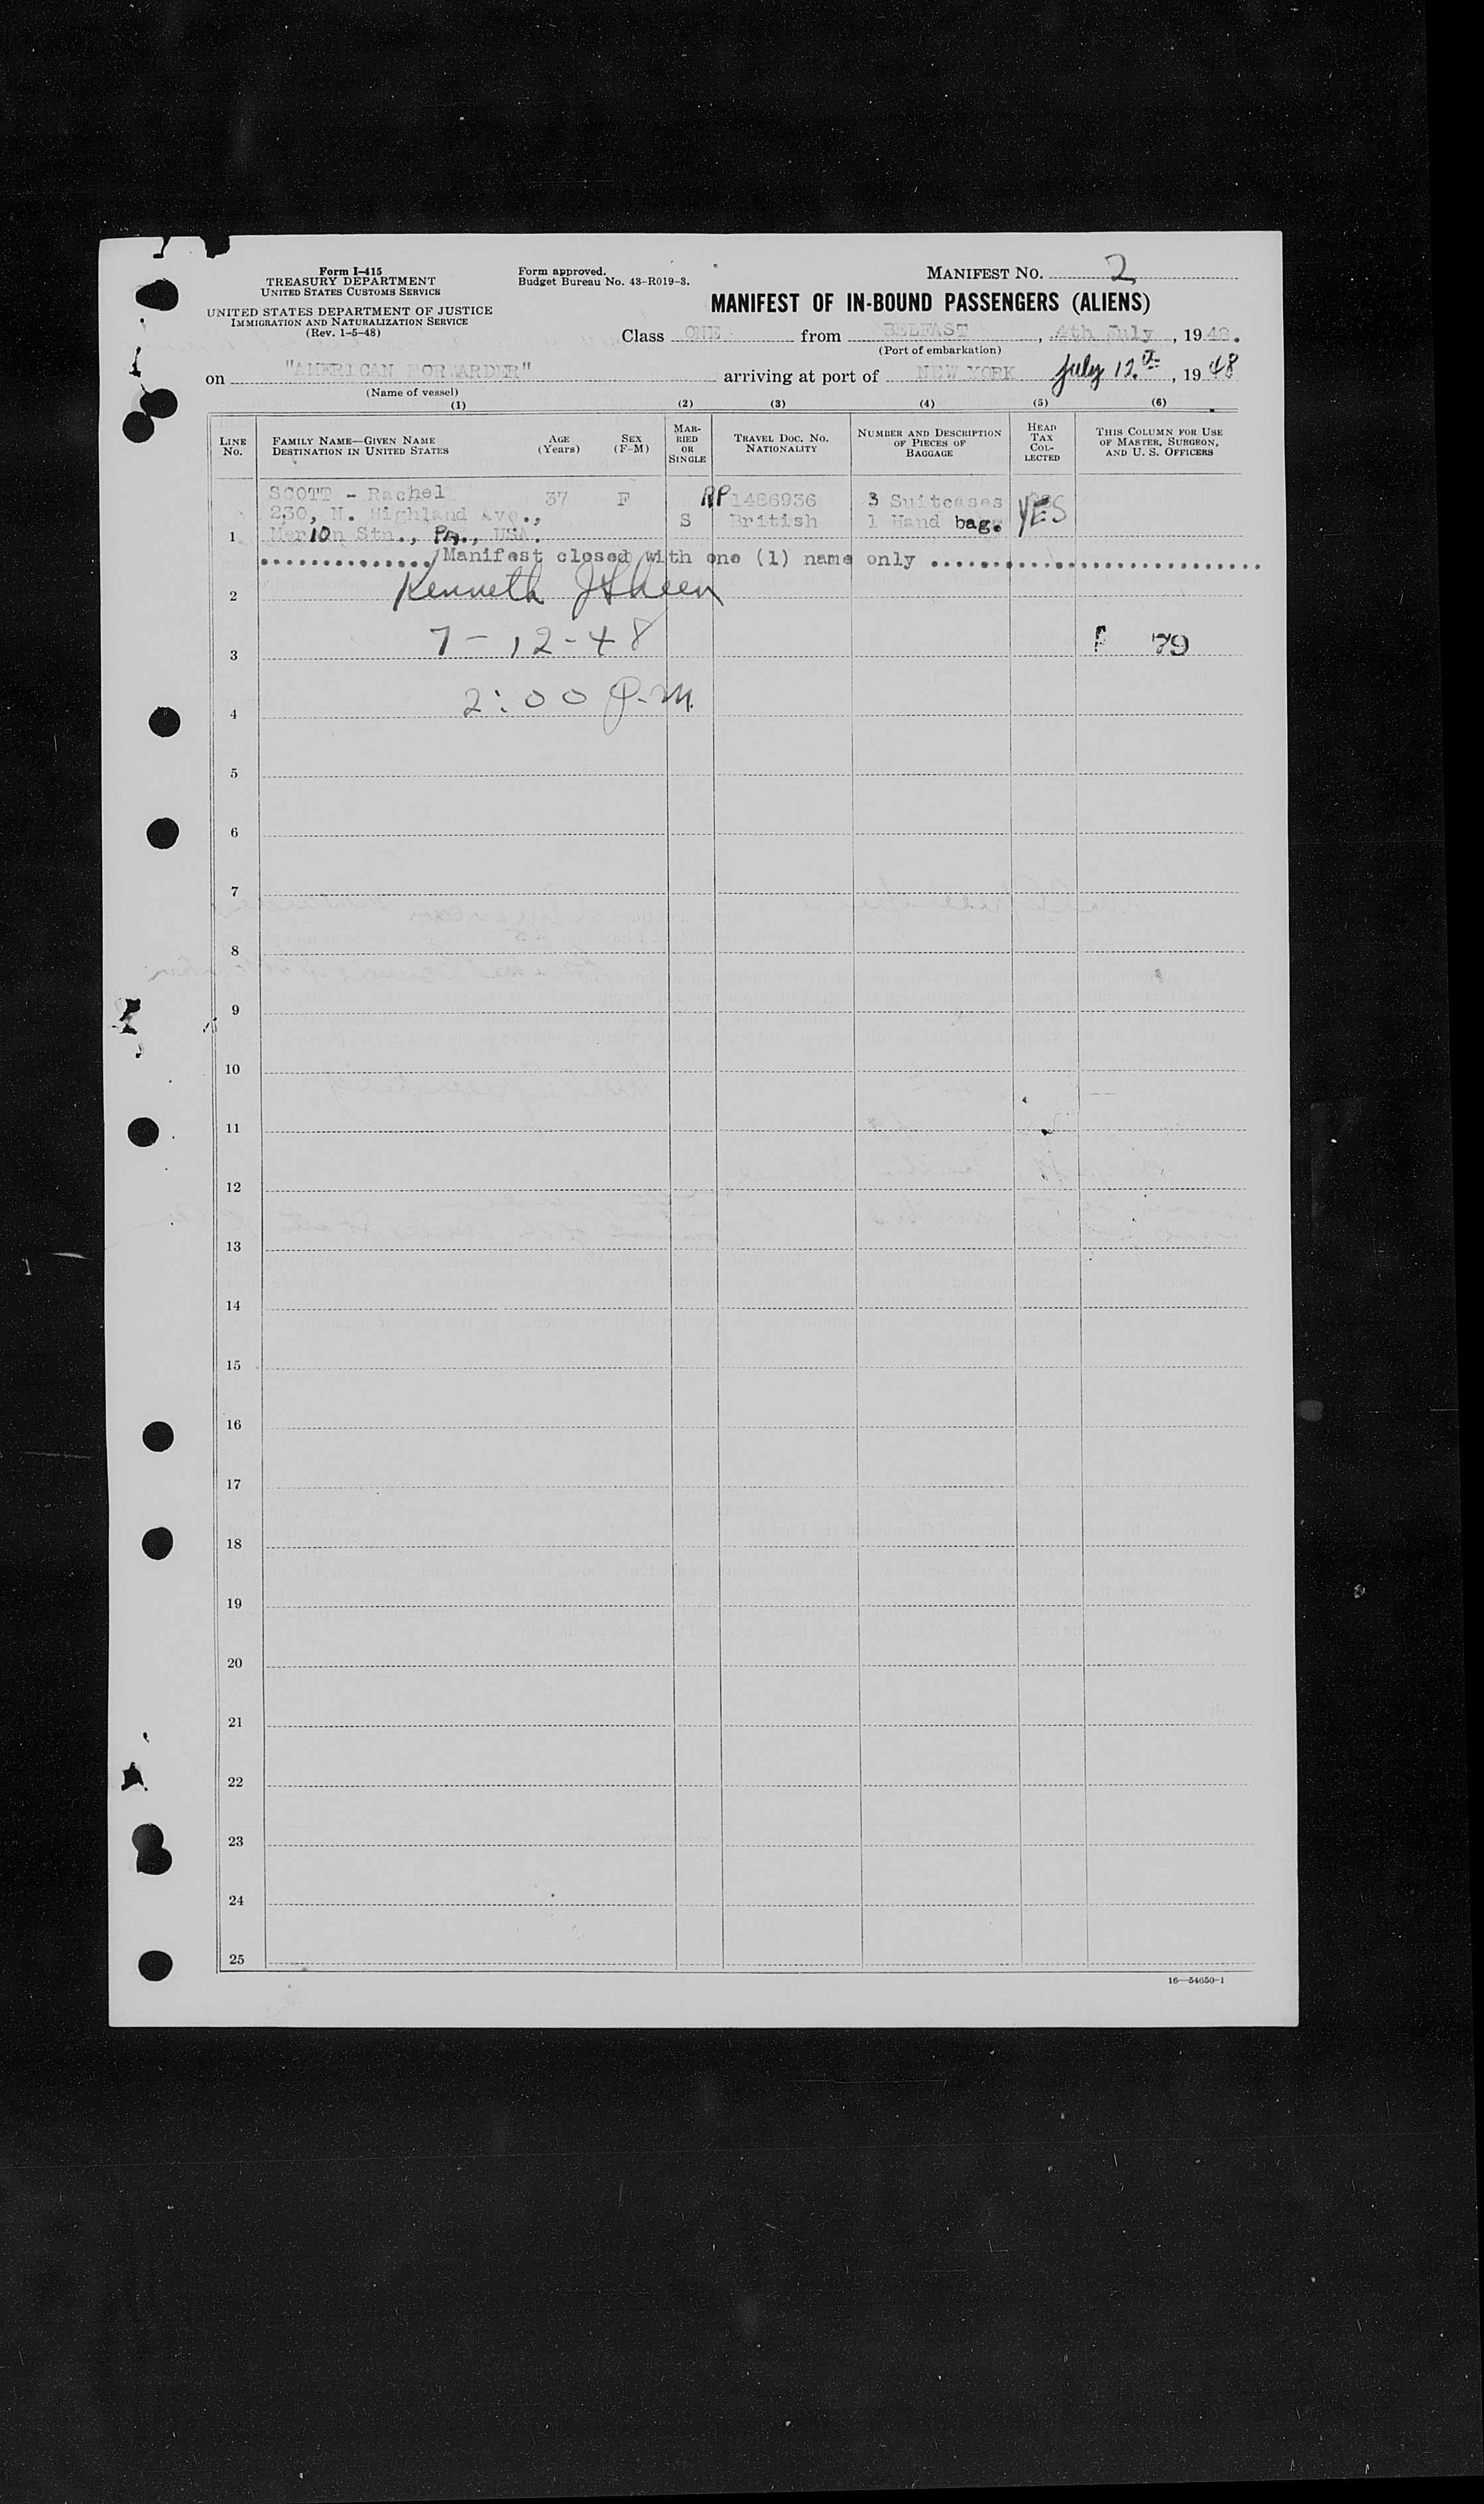 Form I-415
TREASURY DEPARTMENT
UNITED STATES CUSTOMS SERVICE
UNITED STATES DEPARTMENT OF JUSTICE
IMMIGRATION AND NATURALIZATION SERVICE
(Rev. 1-5-48)
Form approved.
Budget Bureau No. 43-R019-3.
MANIFEST NO. 2
MANIFEST OF IN-BOUND PASSENGERS (ALIENS)
Class ONE from BELFAST, 4th July, 1948.
(Port of embarkation)
on "AMERICAN FORWARDER" arriving at port of NEW YORK July 12th, 1948
(Name of vessel)
(1) (2) (3) (4) (5) (6)
LINE No. FAMILY NAME—GIVEN NAME DESTINATION IN UNITED STATES AGE (Years) SEX (F-M) MARRIED OR SINGLE TRAVEL DOC. No. NATIONALITY NUMBER AND DESCRIPTION OF PIECES OF BAGGAGE HEAD TAX COLLECTED THIS COLUMN FOR USE OF MASTER, SURGEON, AND U. S. OFFICERS
SCOTT - Rachel 37 F RP 1486936 3 Suitcases YES
230, N. Highland Ave., S British 1 Hand bag.
1 Merion Stn., PA., USA.
Manifest closed with one (1) name only
2 Kenneth
3 7-12-48 F 79
4 2:00 P.M.
5
6
7
8
9
10
11
12
13
14
15
16
17
18
19
20
21
22
23
24
25
16—54650-1